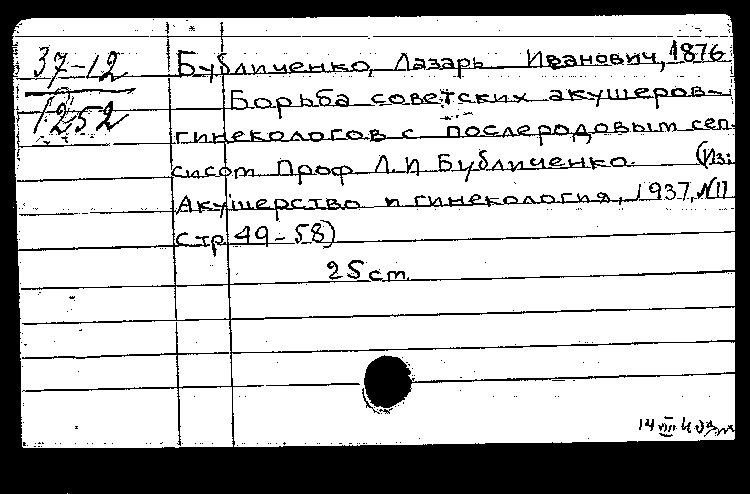 37-12
1252
Бубличенко, Лазарь Иванович, 1876
Борьба советских акушеров-
гинекологов с послеродовым сеп-
сисом Проф Л.И Бубличенко. (Из:
Акушерство и гинекология, 1937, N11
стр 49-58)
25 cm
14 VIII 40